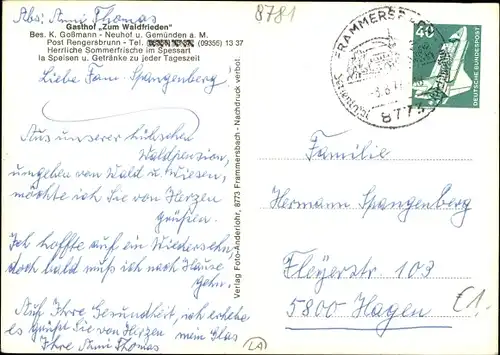 Abs: Anni Thomas
Gasthof „Zum Waldfrieden"
Bes. K. Goßmann - Neuhof u. Gemünden a. M.
Post Rengersbrunn - Tel. (09355) 13 37
Herrliche Sommerfrische im Spessart
la Speisen u. Getränke zu jeder Tageszeit
Liebe Fam. Spangenberg
Aus unserer hübschen
Waldpension,
umgeben von Wald u. Wiesen,
möchte ich Sie von Herzen
grüßen.
Ich hoffte auf ein Wiedersehn,
doch bald muß ich nach Hause
gehn.
Auf Ihre Gesundheit, ich erhebe
es grüßt Sie von Herzen mein Glas
Ihre Anni Thomas
Verlag Foto-Anderlohr, 8773 Frammersbach - Nachdruck verbot.
8781
FRAMMERSBACH
8773
40
DEUTSCHE BUNDESPOST
Familie
Hermann Spangenberg
Fleyerstr. 103
5800 Hagen
€1.
LA